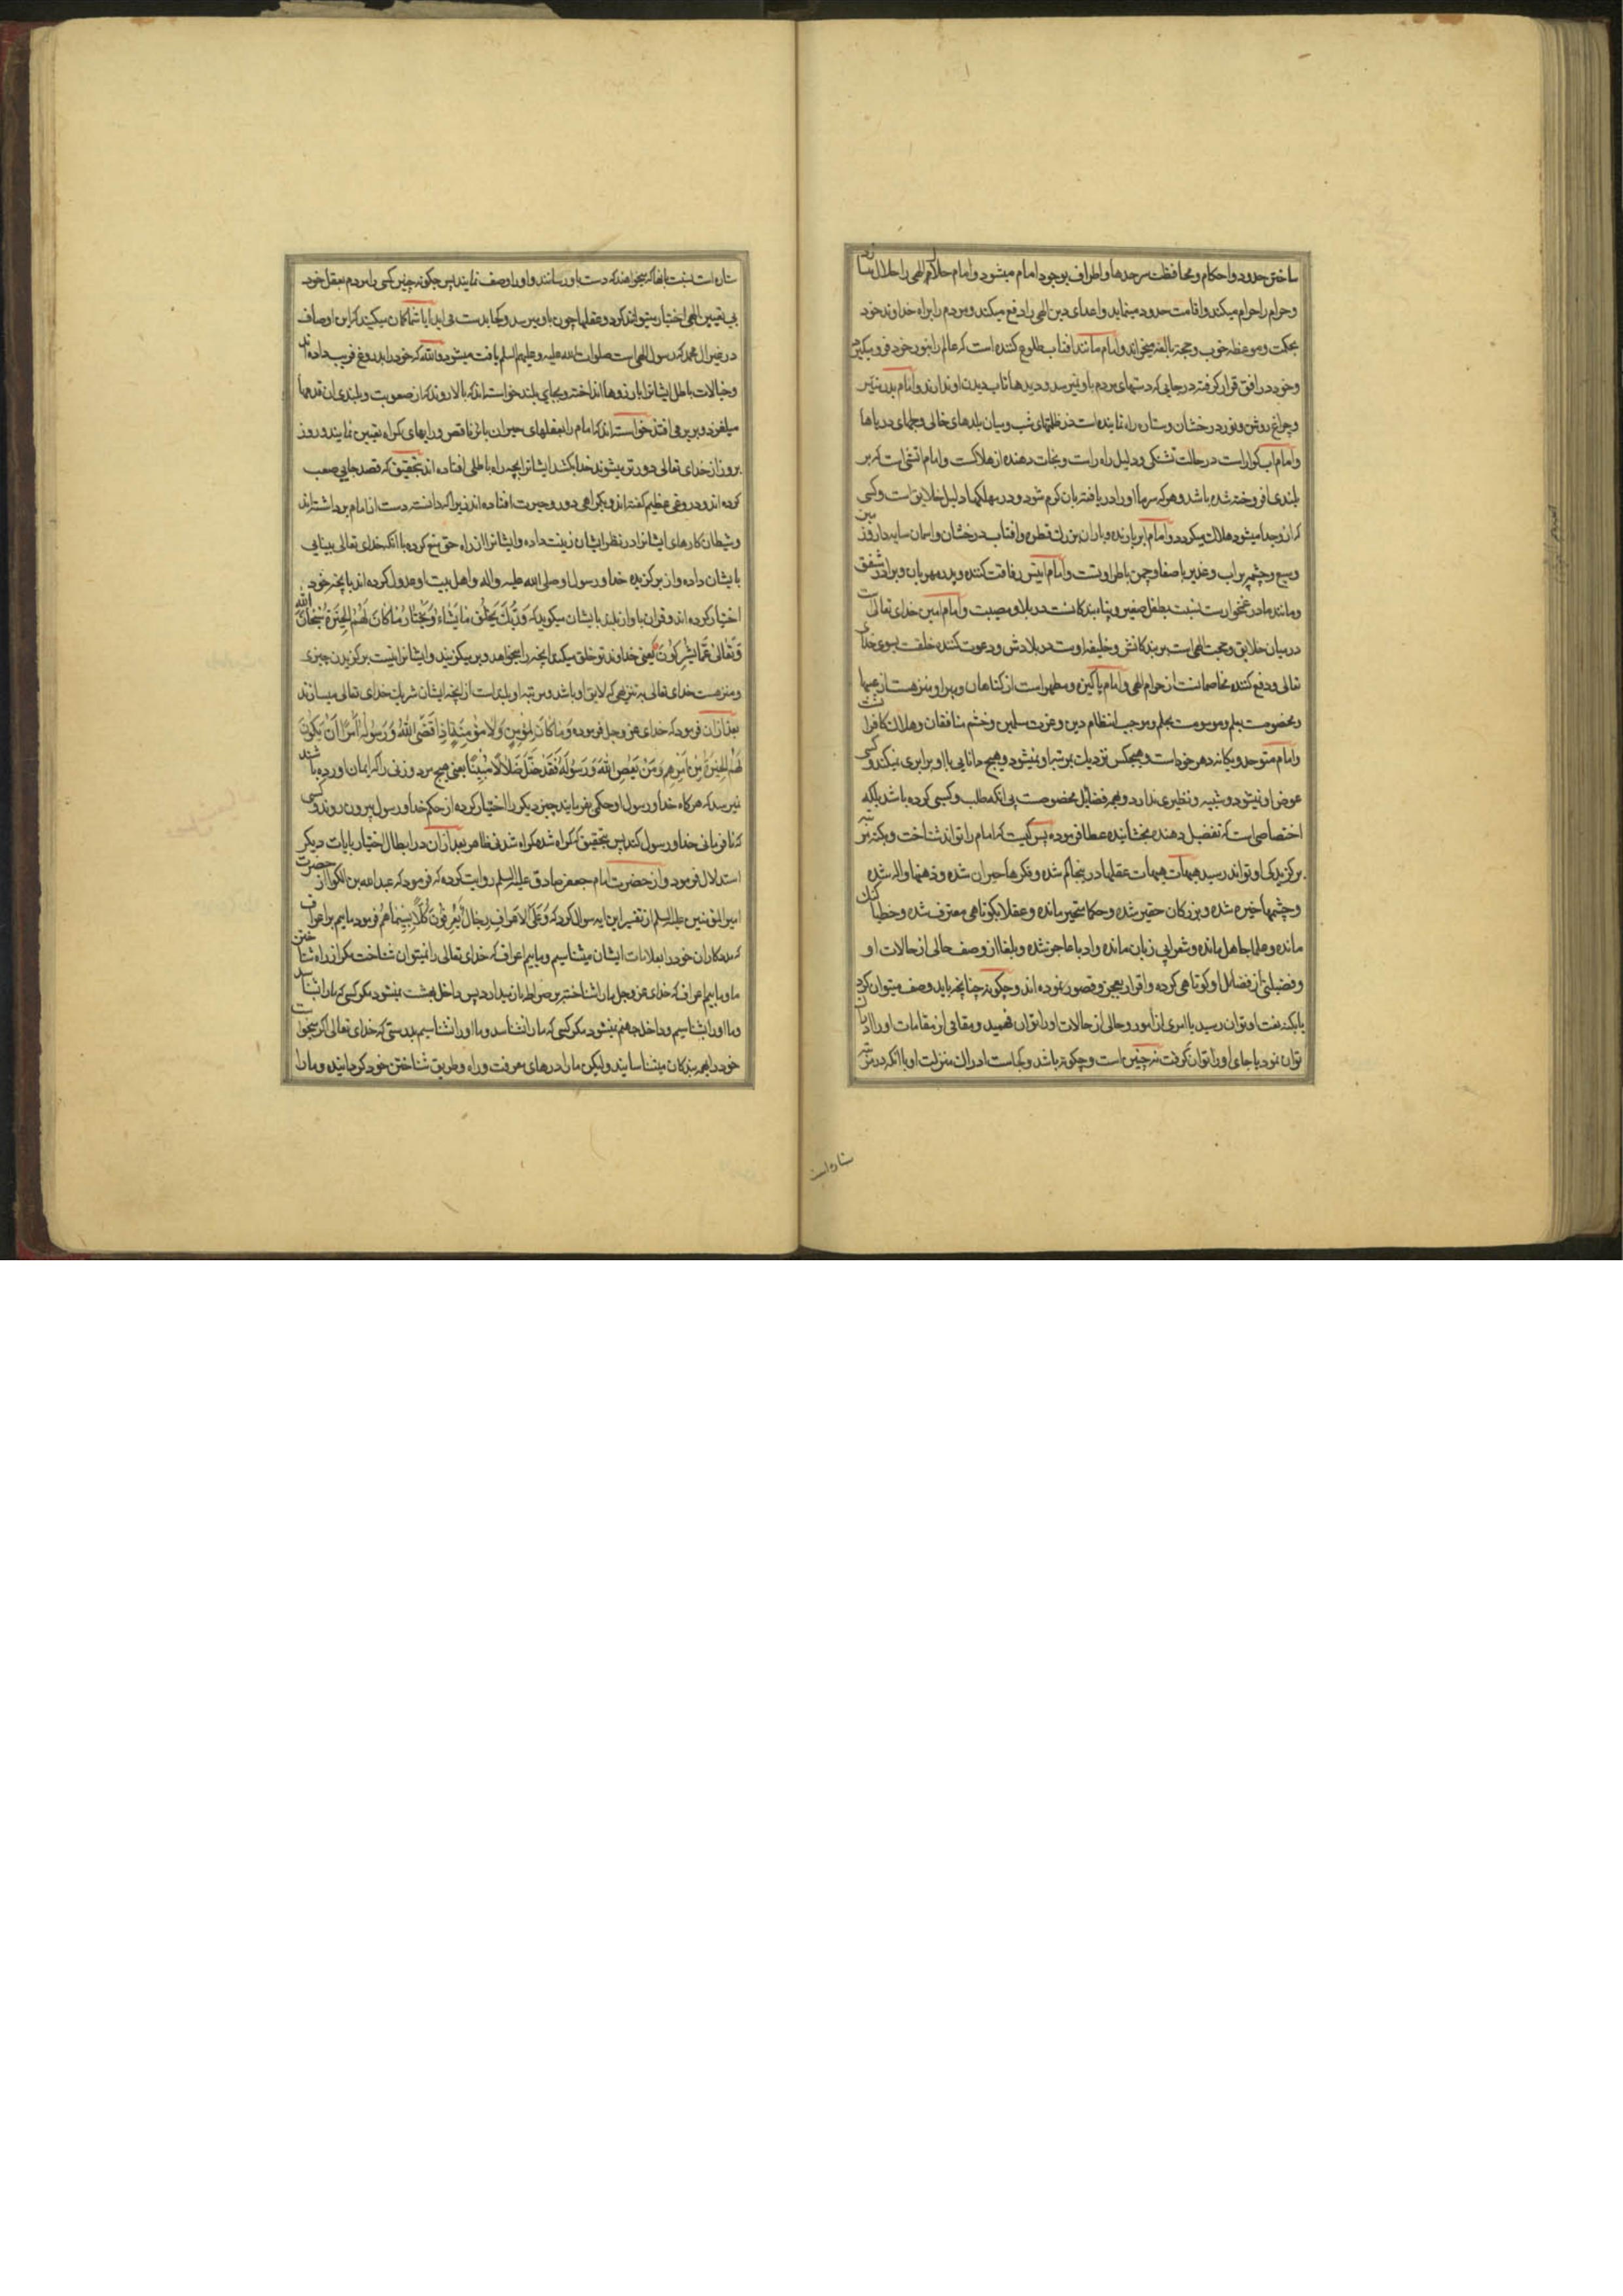 ساختن حدود و احکام و محافظت سرحدها و اطراف بوجود امام میشود و امام حلال الهی را حلال میسازد
و حرام را حرام میکند و اقامت حدود مینماید و اعدای دین الهی را دفع میکند و مردم را براه خداوند خود
بحکمت و موعظه خوب و حجة بالغه میخواند و امام مانند افتاب طلوع کننده است که عالم را بنور خود فرو میکیرد
و خود در افق قرار کرفته در جایی که دستهای مردم باو نمیرسد و دیدها تاب دیدن او ندارند و امام بدر منیر
و چراغ روشن و نور درخشان و ستاره راه نماینده است در ظلمتهای شب و میان بلدهای خالی و لجهای دریاها
و امام اب کواراست در حالت تشنکی و دلیل راه راست و نجات دهنده از هلاکت و امام اتشی است که بر
بلندی افروخته شده باشد و هر که سرما او را دریافته بان کرم شود و در مهلکها دلیل خلایق است و کسی
که از و جدا میشود هلاک میکردد و امام ابر بارنده و باران بزرک قطره و افتاب درخشان و اسمان سایه دار و زمین
وسیع و چشمه پر اب و غدیر با صفا و چمن با طراوتست و امام انیس رفاقت کننده و پدر مهربان و برادر شفق
و مانند مادر غمخوار است نسبت بطفل صغیر و پناه بندکانست در بلا و مصیبت و امام امین خدای تعالی است
در میان خلایق و حجت الهی است بر بندکانش و خلیفه اوست در بلادش و دعوت کننده خلقست بسوی خدای
تعالی و دفع کننده مخاصمانست از حرام الهی و امام پاکیزه و مطهر است از کناهان و مبرا و منزهست از عیبها
و مخصوصست بعلم و موسومست بحلم و موجب انتظام دین و عزت مسلمین و خشم منافقان و هلاک کافرانست
و امام متوحد و یکانه دهر خود است و هیچکس نزدیک بمرتبه او نمیشود و هیچ دانایی با او برابری نمیکند و کسی
عوض او نمیشود و شبیه و نظیری ندارد و بهمه فضایل مخصوصست بی انکه طلب و کسبی کرده باشد بلکه
اختصاصی است که تفضیل دهنده بخشاینده عطا فرموده پس کیست که امام را تواند شناخت و بکنه مرتبه
برکزیدکی او تواند رسید هیهات هیهات عقلها در ینجا کم شده و فکرها حیران شده و ذهنها واله شده
و چشمها خیره شده و بزرکان حقیر شده و حکما متحیر مانده و عقلا بکوتاهی معترف شده و خطیبان کنک
مانده و علما جاهل مانده و شعرا بی زبان مانده و ادبا عاجز شده و بلغا از وصف حالی از حالات او
و فضیلتی از فضائل او کوتاهی کرده و اقرار بعجز و قصور نموده اند و چکونه چنانچه باید وصف میتوان کرد
یا بکنه نعت او توان رسید یا امری از امور و حالی از حالات او را توان فهمید و مقامی از مقامات او را ادا
توان نمود یا جای او را توان کرفت نه چنین است و چکونه باشد و کجاست ادراک منزلت او با انکه در مرتبه
ستاره است
ستاره است نسبت بانها که میخواهند که دست باو رسانند و او را وصف نمایند پس چکونه چنین کسی را مردم بعقل خود
بی تعیین الهی اختیار میتوانند کرد و عقلها چون باو میرسد و کجا بدست می اید ایا شما کمان میکنید که این اوصاف
در غیر ال محمد که رسول الهی است صلوات الله علیه و علیهم السلم یافت میشود والله که خود را بدروغ فریب داده اند
و خیالات باطل ایشانرا بارزوها انداخته و بجای بلند خواسته اند که بالا روند که از صعوبت و بلندی ان قدمها
میلغزد و بزیر می افتد خواسته اند که امام را بعقلهای حیران بائر ناقص و رایهای کمراه تعیین نمایند و روز
بروز از خدای تعالی دورتر میشوند خدا بکشد ایشانرا بچه راه باطلی افتاده اند بتحقیق که قصد جایی صعب
کرده اند و دروغی عظیم کفته اند و بکمراهی دور و حیرت افتاده اند زیرا که دانسته دست از امام برداشته اند
و شیطان کارهای ایشانرا در نظر ایشان زینت داده و ایشانرا از راه حق منع کرده با انکه خدای تعالی بینایی
بایشان داده و از برکزیده خدا و رسول او صلی الله علیه و اله و اهل بیت او عدول کرده اند بانچه خود
اختیار کرده اند و قران باواز بلند بایشان میکوید که وَرَبُّكَ يَخْلُقُ مَا يَشَاءُ وَيَخْتَارُ مَا كَانَ لَهُمُ الْخِيَرَةُ سُبْحَانَ اللّٰهِ
وَتَعَالَىٰ عَمَّا يُشْرِكُونَ یعنی خداوند تو خلق میکند انچه را میخواهد و بر میکزیند و ایشانرا نیست برکزیدن چیزی
و منزهست خدای تعالی به تنزیهی که لایق او باشد و مرتبه او بلند است از انچه ایشان شریک خدای تعالی میسازند
بعد از ان فرمود که خدای عز و جل فرموده وَمَا كَانَ لِمُؤْمِنٍ وَلَا مُؤْمِنَةٍ إِذَا قَضَى اللّٰهُ وَرَسُولُهُ أَمْرًا أَنْ يَكُونَ
لَهُمُ الْخِيَرَةُ مِنْ أَمْرِهِمْ وَمَنْ يَعْصِ اللّٰهَ وَرَسُولَهُ فَقَدْ ضَلَّ ضَلَالًا مُبِينًا یعنی هیچ مرد و زنی را که ایمان اورده باشند
نمیرسد که هر کاه خدا و رسول او حکمی بفرمایند چیز دیکر را اختیار کرده از حکم خدا و رسول بیرون روند و کسی
که نافرمانی خدا و رسول کند پس بتحقیق که کمراه شده کمراه شدنی ظاهر بعد از ان در ابطال اختیار بایات دیکر
استدلال فرمود و از حضرت امام جعفر صادق علیه السلم روایت کرده که فرمود که عبدالله بن الکوا از حضرت
امیر المؤمنین علیه السلم از تفسیر این ایه سوال کرد که وَعَلَى الْأَعْرَافِ رِجَالٌ يَعْرِفُونَ كُلًّا بِسِيمَاهُمْ فرمود ماییم بر اعراف
که مددکاران خود را بعلامات ایشان میشناسیم و ماییم اعراف که خدای تعالی را نمیتوان شناخت مکر از راه شناختن
ما و ماییم اعراف که خدای عز و جل ما را شناخته بر صراط باز میدارد پس داخل بهشت نمیشود مکر کسی که ما را شناسد
و ما او را بشناسیم و داخل جهنم نمیشود مکر کسی که ما را نشناسد و ما او را نشناسیم بدرستی که خدای تعالی اکر میخواست
خود را بهمه بندکان میشناسانید ولیکن ما را درهای معرفت و راه و طریق شناختن خود کردانیده و ما را